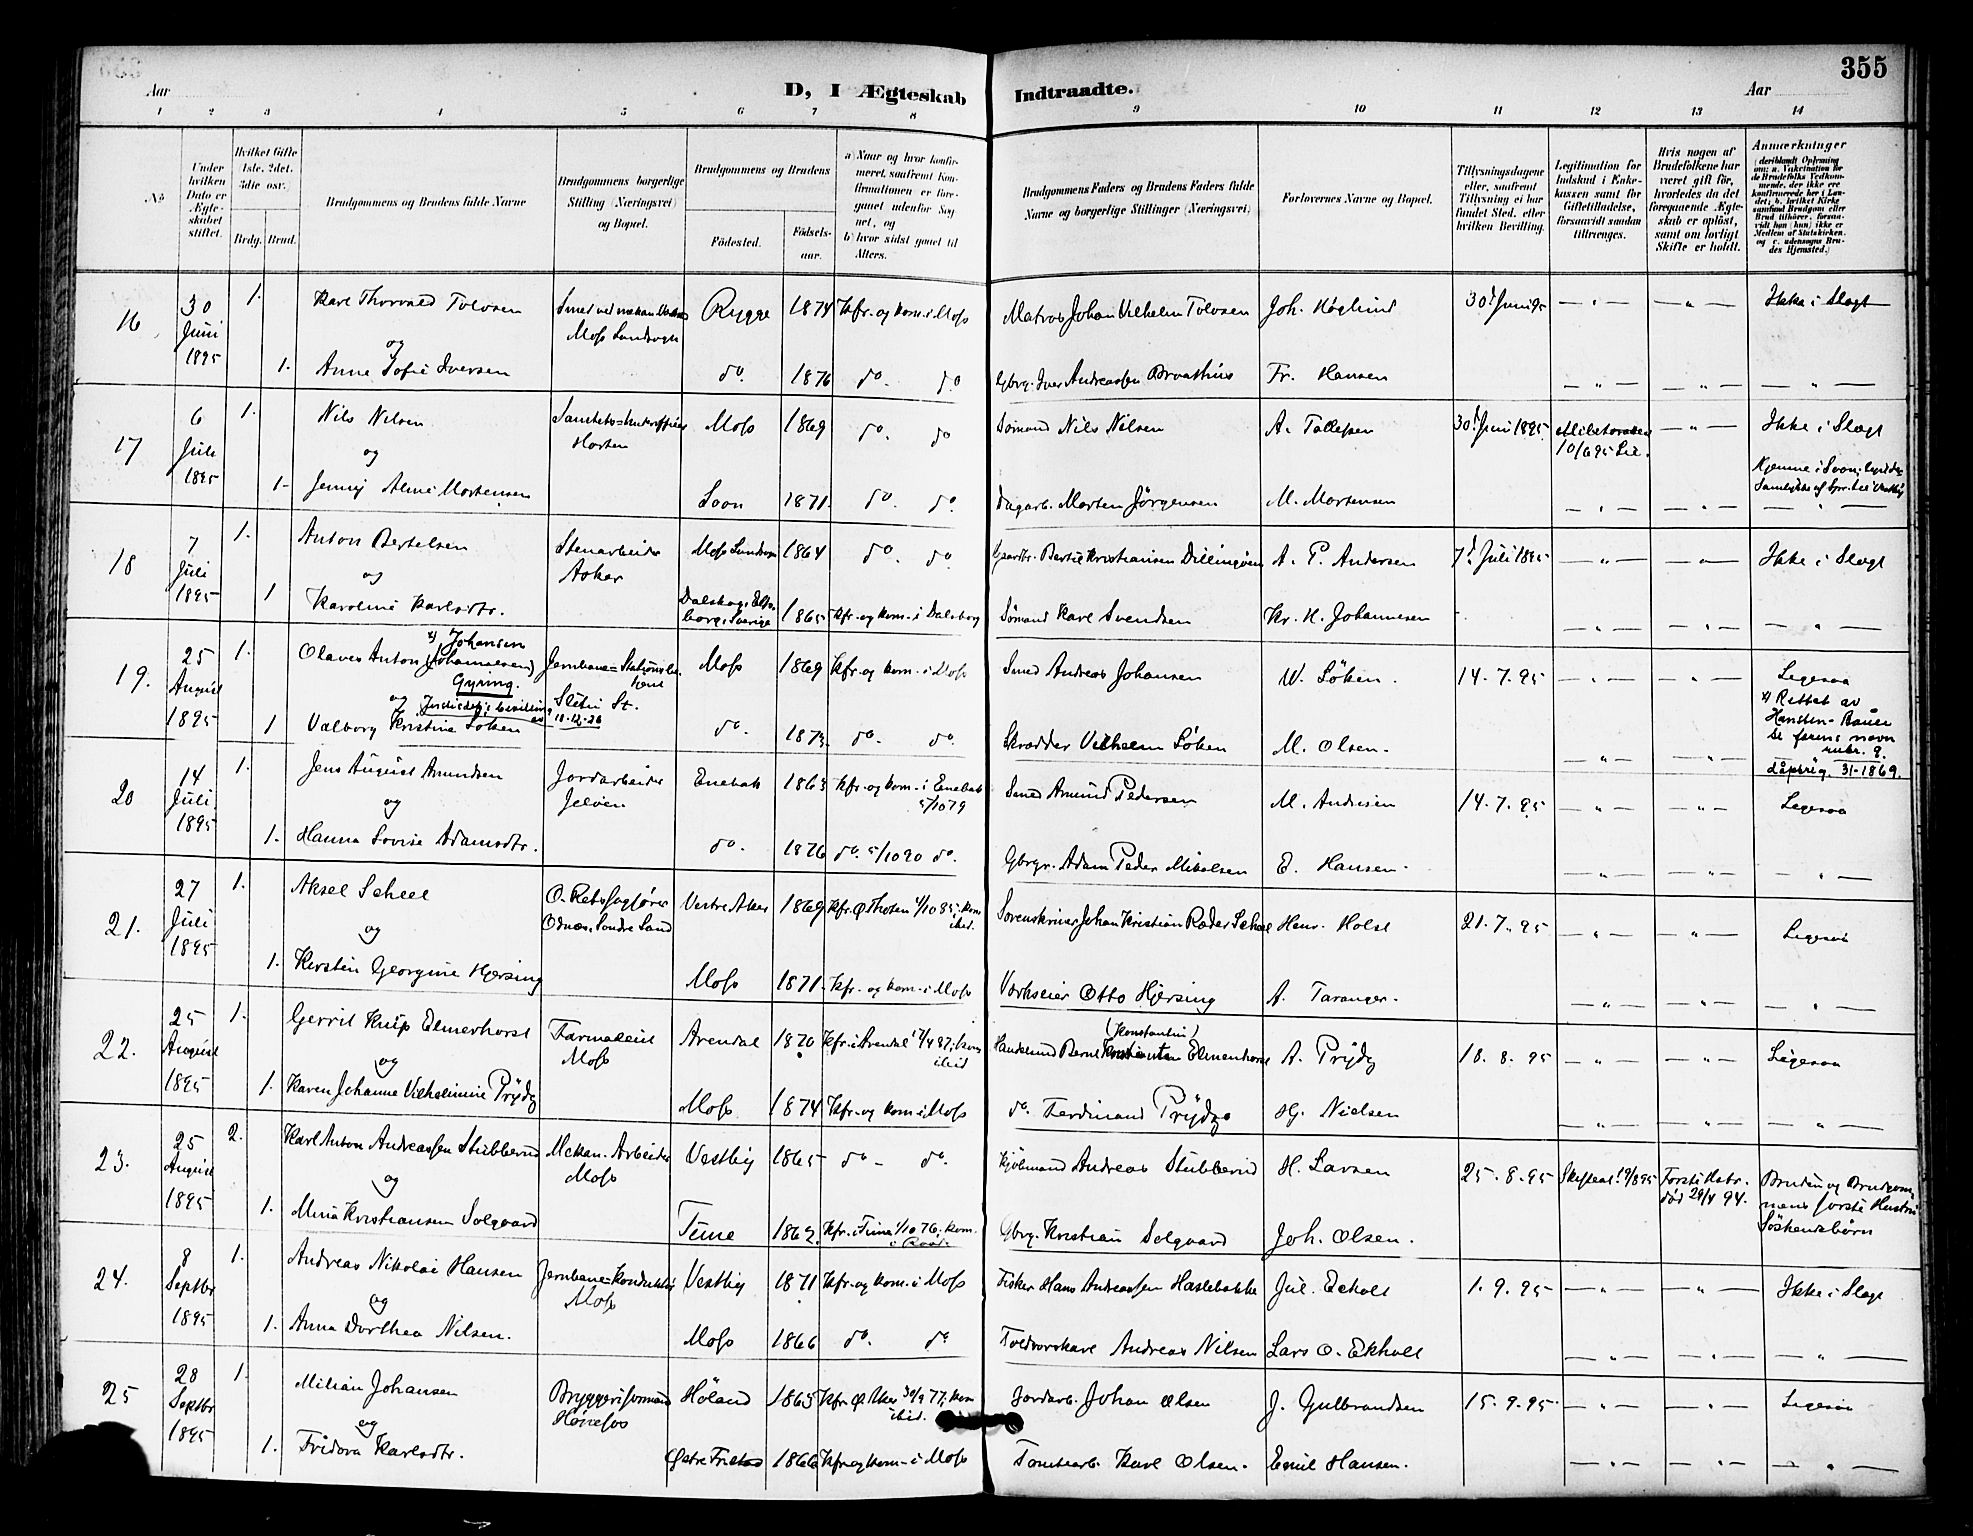 355
Aar
D, I Ægteskab Indtraadte.
Aar
1 2 3 4 5 6 7 8 9 10 11 12 13 14
No
Under hvilken Dato er Ægteskabet stiftet.
Hvilket Gifte (1ste, 2det, 3die osv.)
Brdg. Brud.
Brudgommens og Brudens fulde Navne
Brudgommens borgerlige Stilling (Næringsvei) og Bopæl.
Brudgommens og Brudens
Fødested. Fødselsaar.
a) Naar og hvor konfirmeret, saafremt Konfirmationen er foregaaet udenfor Sognet, og
b) hvor sidst gaaet til Alters.
Brudgommens Faders og Brudens Faders fulde Navne og borgerlige Stillinger (Næringsvei)
Forlovernes Navne og Bopæl.
Tillysningsdagene eller, saafremt Tillysning ei har fundet Sted, efter hvilken Bevilling.
Legitimation for Indskud i Enkekassen samt for Giftetilladelse, forsaavidt saadan tiltrænges.
Hvis nogen af Brudefolkene har været gift før, hvorledes da det foregaaende Ægteskab er opløst, samt om lovligt Skifte er holdt.
Anmærkninger
16 30 Juni 1895 1. Karl Thorvald Tolvsen Rygge 1874 Kfr. og kom. i Moss Matros Johan Vilhelm Tolvsen Joh. Höglund 30' Juni 95 Ikke i Slægt
og
1. Anne Sofie Iversen do. 1876 do. do Gbrg. Iver Andreassen Fr. Hansen
17 6 Juli 1895 1. Nils Nilsen Horten Moss 1869 do. do Sømand Nils Nilsen A. Tollefsen 30' Juni 1895 10/6 95 Ikke i Slægt
og
1. Jenny Aline Mortensen Soon 1871. do. do. Dagarb. Morten Jörgensen M. Mortensen
18 7 Juli 1895 1. Anton Bertelsen Stenarbeider Moss Landsogn 1864 do. do. Bertil Kristiansen Dillingöen A. P. Andersen 7' Juli 1895 Ikke i Slægt
og
1 Karoline Karlsdtr. Sverige 1865 Kfr. og kom. i Dalsborg Sømand Karl Svendsen Kr. H. Johannesen
19. 25 August 1895 1. x) Johansen
Olaves Anton (Johannesen)
Gyring. Moss 1869 Kfr. og kom. i Moss Smed Andreas Johansen W. Söken 14.7.95 Ligesaa
og Justisdep.s bevilling av 10-12-26
1 Valborg Kristine Söken do. 1873. do. do. Skrædder Vilhelm Söken M. Olsen.
x) Rettet av
Hansten-Bauer
se farens navn
rubr. 9.
dåpsreg. 31-1869.
20 14 Juli 1895 1. Jens August Amundsen Jordarbeider Jelöen Enebak 1863 Kfr. og kom. i Enebak 5/10 79 Smed Amund Pedersen M. Andersen 14.7.95 Ligesaa
og
1. Hanna Lovise Adamsdtr. do. 1876 do. 5/10 90 do. Gbrgr. Adam Peder Mikelsen E. Hansen.
21. 27 Juli 1895 1. Aksel Scheel O. Retssagfører Odnæs, Søndre Land Vestre Aker 1869 Kfr. Ø. Thoten 4/10 85, kom ibid. Sorenskriver Johan Kristian Ræder Scheel Henr. Holst 21.7.95 Ligesaa
og
1. Kirstin Georgine Hjersing Moss 1871. Kfr. og kom. i Moss Værkseier Otto Hjersing A. Taranger.
22. 25 August 1895 1. Gerrit Knip Elmenhorst Farmaceut Moss Arendal 1870 Kfr. i Arendal 17/4 87; kom ibid (Konstantin)
Elmenhorst A. Prydz 18.8.95 Ligesaa
og
1. Karen Johanne Vilhelmine Prydz Moss 1874 Kfr. og kom. i Moss do. Ferdinand Prydz. Hj. Nielsen
23. 25 August 1895 2. Karl Anton Andreassen Stubberud Mekan. Arbeider Moss Vestby 1865 do – do. Andreas Stubberud H. Larsen 25.8.95 Skifteat. 9/8 95 Første Hstr. død 29/4 94. Bruden og Brudgommens første Hustru Søskendebørn
og
1. Mina Kristiansen Solgaard Tune 1862. Kfr. i Tune 1/10 76. kom. Gbrg. Kristian Solgaard Joh. Olsen.
24. 8 Septbr 1895 1. Andreas Nikolai Hansen Jernbane-Konduktør Moss Vestby 1871 Kfr. og kom. i Moss Fisker Hans Andreassen Haslebakke Jul. Eckholt 1.9.95 Ikke i Slægt
og
1. Anna Dorthea Nilsen. Moss 1866 do. do Andreas Nilsen Lars O. Ekholt
25 28 Septbr 1895 1. Milian Johansen Bryggeriformand Hønefos Høland 1863 Kfr. Ø. Aker 30/9 77; kom ibid. Jordarb. Johan Olsen J. Gulbrandsen 15.9.95 Ligesaa
og
1. Fridova Karlsdtr. 1866 Kfr og kom. i Moss Tomtearb. Karl Olsen. Emil Hansen.